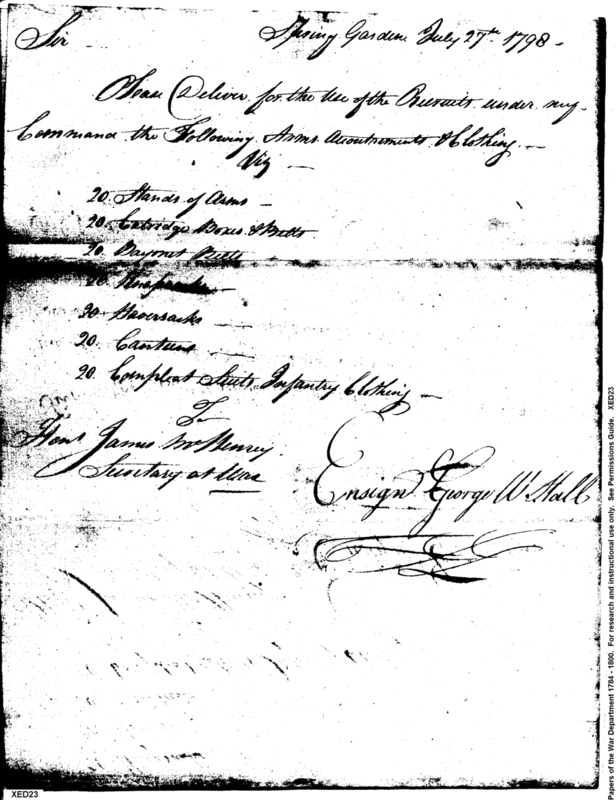 Sir Spring Garden July 27th 1798 -
Please Deliver for the Use of the Recruits under my
Command the Following Arms Accoutrements & Clothing -
Viz -
20. Stands of Arms -
20. Catridge Boxes & Belts
20. Bayonet Belts
20 Knapsacks -
20 Haversacks -
20. Canteens -
20. Compleat Suits Infantry Clothing -
To
Honl. James McHenry
Secretary at War
Ensign George W Hall
Papers of the War Department 1784 - 1800. For research and instructional use only. See Permissions Guide. XED23
XED23